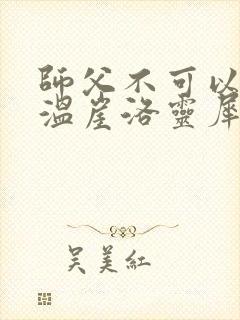 師父不可以
溫崖洛靈犀
吳美紅